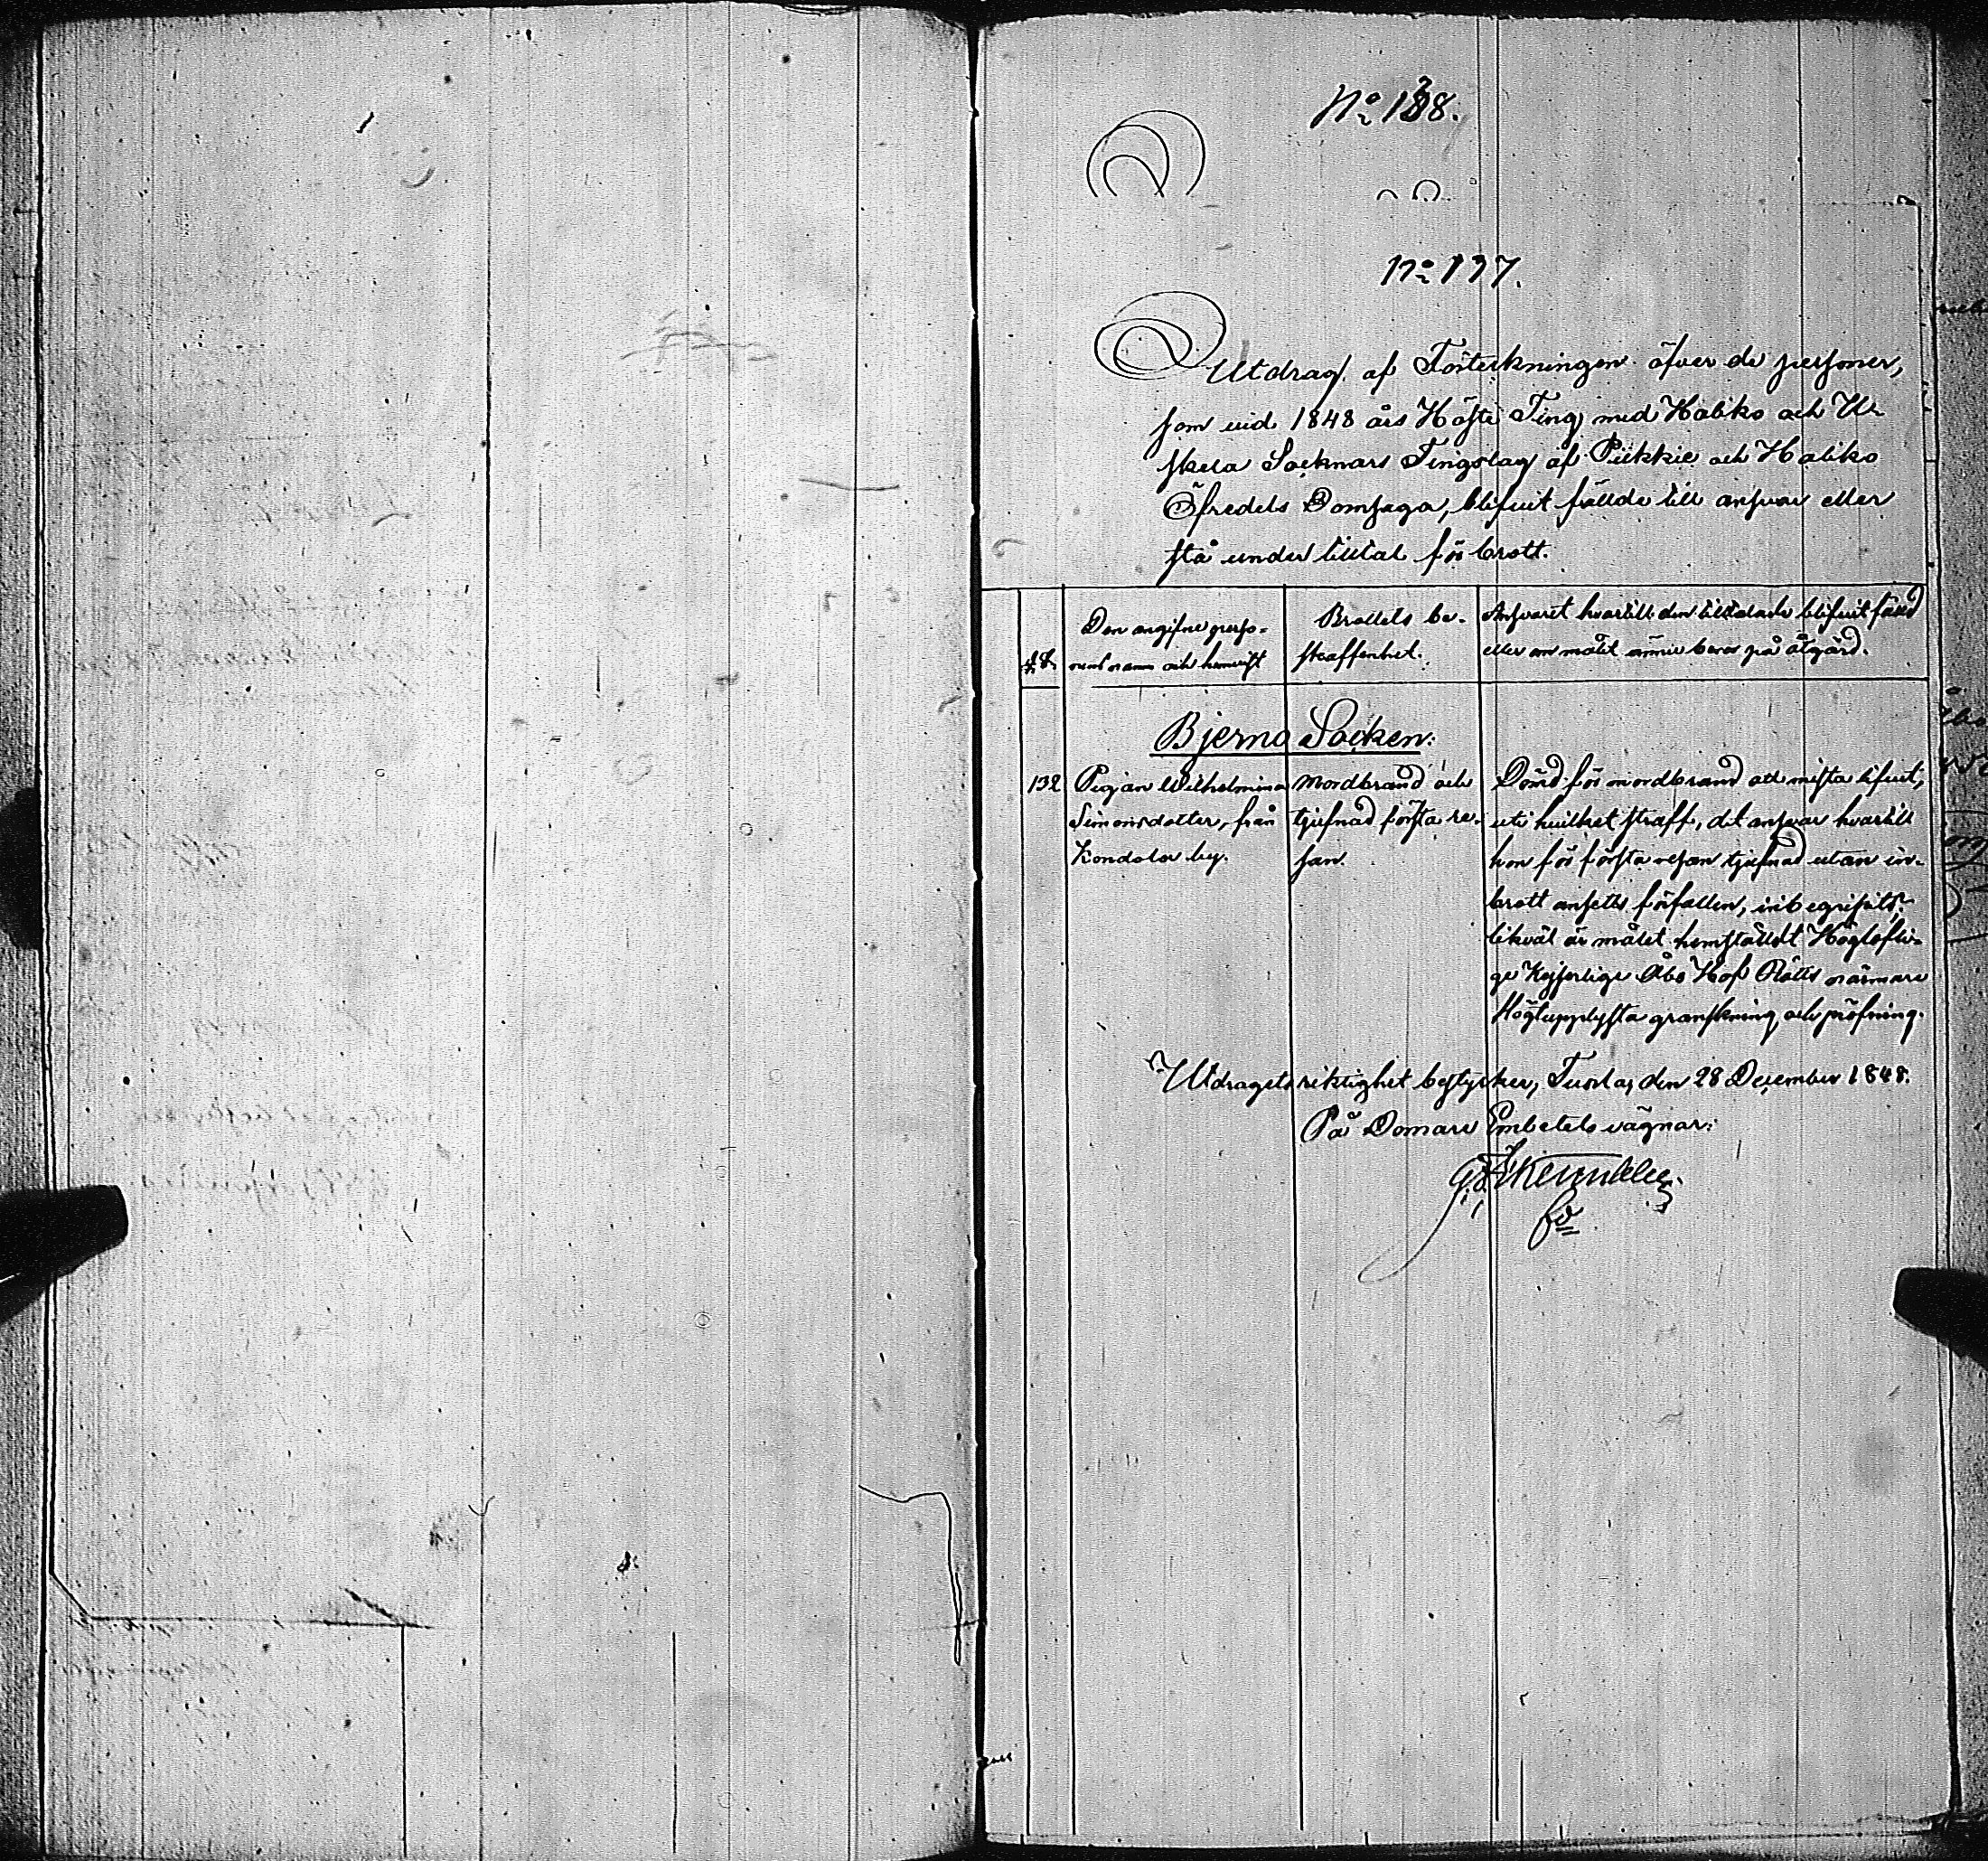 No 188.
No 177.
Utdrag af Förteckningen öfver de personer,
som vid 1848 års Höste Ting med Haliko och U-
skela Socknars Tingslag af Piikkie och Haliko
Öfredels Domsaga, blifvit fällde till ansvar eller
stå under tilltal för brott.
Den angifne perso-
nens namn och hemvist
Brottets be-
skaffenhet.
Ansvaret hvartill den tilltalade blifvit fälld
eller om målet ännu beror på åtgärd.
Bjerno Socken:
132
Pigan Wilhelmina
Simonsdotter, från
Kondola by.
Mordbrand och
tjufnad första re-
san.
Dömd för mordbrand att mista lifvet,
uti hvilket straff, det ansvar hvartill
hon för första resan tjufnad utan in-
brott ansetts förfallen, inbegripits;
likväl är målet hemstäldt Höglofli-
ge Kejserlige Åbo Hof Rätts närmare
Högtupplysta granskning och pröfning.
Utdragets riktighet bestyrker, Tuorla, den 28 December 1848.
På Domare Embetets vägnar: